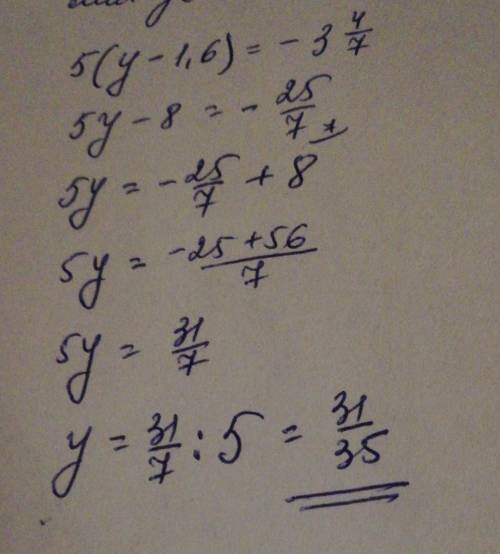 5(y - 1,6) = - 3 4/7
5y - 8 = - 25/7
5y = - 25/7 + 8
5y = -25 + 56/7
5y = 31/7
y = 31/7 : 5 = 31/35